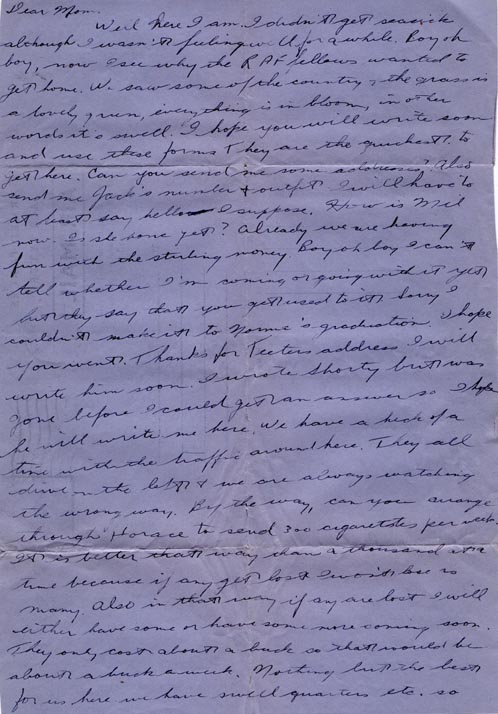 Dear Mom.
Well here I am. I didn't get seasick
although I wasn't feeling well for a while. Boy oh
boy, now I see why the RAF fellows wanted to
get home. We saw some of the country & the grass is
a lovely green, everything is in bloom, in other
words it's swell. I hope you will write soon
and use these forms They are the quickest to
get here. Can you send me some addresses? Also
send me Jack's number & outfit I will have to
at least say hello I suppose. How is Mil
now. Is she home yet? Already we are having
fun with the sterling money. Boy oh boy I can't
tell whether I'm coming or going with it yet
but they say that you get used to it. Sorry I
couldn't make it to Norma's graduation. I hope
you went. Thanks for Teeters address. I will
write him soon. I wrote Shorty but was
gone before I could get an answer so I hope
he will write me here. We have a heck of a
time with the traffic around here. They all
drive on the left & we are always watching
the wrong way. By the way, can you arrange
through Horace to send 300 cigarettes per week
It is better that way than a thousand at a
time because if any get lost I won't lose so
many. Also in that way if any are lost I will
either have some or have some more coming soon.
They only cost about a buck so that would be
about a buck a week. Nothing but the best
for us here we have swell quarters etc. so